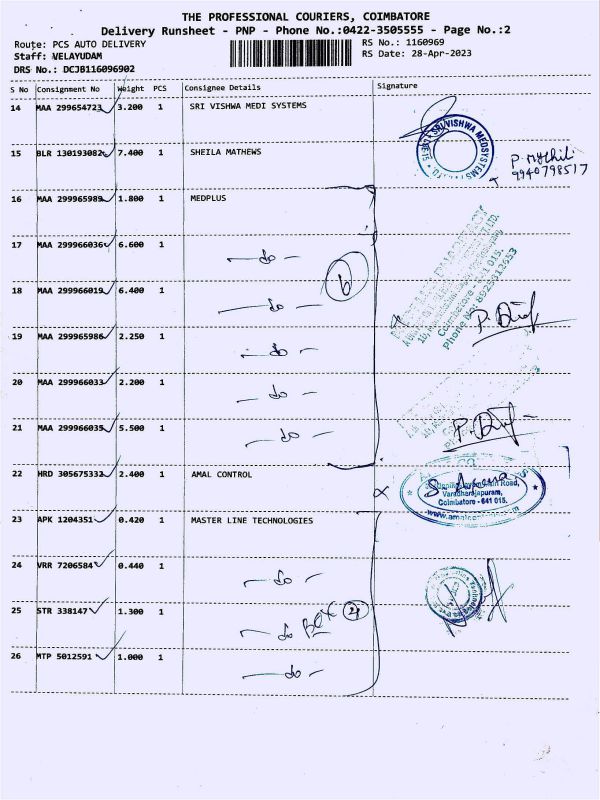 THE PROFESSIONAL COURIERS, COIMBATORE
Delivery Runsheet - PNP - Phone No.:0422-3505555 - Page No.:2
Route: PCS AUTO DELIVERY RS No.: 1160969
Staff: VELAYUDAM RS Date: 28-Apr-2023
DRS No.: DCJB116096902
S No Consignment No Weight PCS Consignee Details Signature
14 MAA 299654723 3.200 1 SRI VISHWA MEDI SYSTEMS
SRI VISHWA MEDSYSTEMS
15 BLR 130193082 7.400 1 SHEILA MATHEWS
P. Mythili
9940798517
16 MAA 299965989 1.800 1 MEDPLUS
17 MAA 299966036 6.600 1
do
Coimbatore - 641 015.
Phone No: 8925813653
18 MAA 299966019 6.400 1
do
19 MAA 299965986 2.250 1
do
20 MAA 299966033 2.200 1
do
21 MAA 299966035 5.500 1
do
22 HRD 305675332 2.400 1 AMAL CONTROL
Varadharajapuram,
Coimbatore - 641 015.
23 APK 1204351 0.420 1 MASTER LINE TECHNOLOGIES
24 VRR 7206584 0.440 1
do
25 STR 338147 1.300 1
do BOX 4
26 MTP 5012591 1.000 1
do